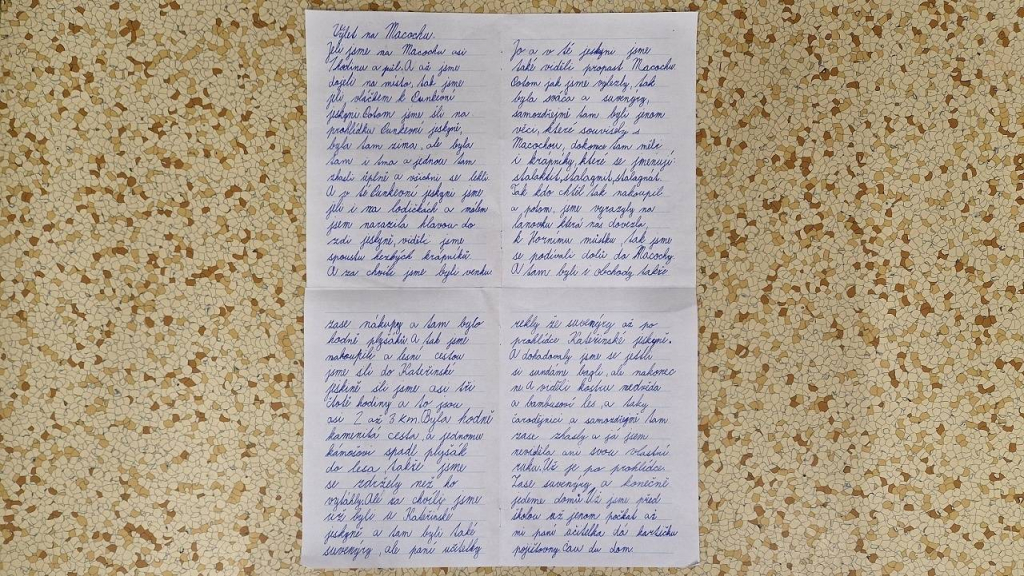 Výlet na Macochu.
Jeli jsme na Macochu asi
1 hodinu a půl. A až jsme
dojeli na místo, tak jsme
jeli vláčkem k Punkevní
jeskyni. Potom jsme šli na
prohlídku Punkevní jeskyní,
byla tam zima, ale byla
tam i tma a jednou tam
zhasli úplně a všichni se lekli.
A v té Punkevní jeskyni jsme
jeli i na lodičkách a málem
jsem narazila hlavou do
zdi jeskyně, viděli jsme
spoustu hezkých krápníků.
A za chvíli jsme byli venku.
Jo a v té jeskyni jsme
také viděli propast Macochu.
Potom jak jsme vylezly, tak
byla svača a suvenýry,
samozdřejmě tam byli jenom
věci, které souvisely s
Macochou, dokonce tam měli
i krápníky, které se jmenují
stalaktit, stalagmit, stalagnat.
Tak kdo chtěl tak nakoupil
a potom jsme vyrazyly na
lanovku která nás dovedla
k Hornímu můstku, tak jsme
se podívali dolů do Macochy.
A tam byli i obchody takže
zase nákupy a tam bylo
hodně plyšáků. A tak jsme
nakoupili a lesní cestou
jsme šli do Kateřinské
jeskině šli jsme asi tři
čtvtě hodiny a to jsou
asi 2 až 3 km. Byla hodně
kamenitá cesta, a jednomu
klukovi spadl plyšák
do lesa, takže jsme
se zdržely než ho
vytáhly. Ale za chvíli jsme
už byli u Kateřinské
jeskyně, a tam byli také
suvenýry, ale paní učitelky
řekly že suvenýry až po
prohlídce Kateřinské jeskyně.
A dohadovaly jsme se jestli
si sundáme bagli, ale nakonec
ne. A viděli kostru medvěda
a bambusový les, a taky
čarodějnici a samozdřejmě tam
zase zhasly a já jsem
neviděla ani svou vlastní
ruku. Už je po prohlídce.
Zase suvenýry, a konečně
jedeme domů. Už jsme před
školou už jenom počkat až
mi paní učitelka dá kartičku
pojišťovny. Čau du dom.